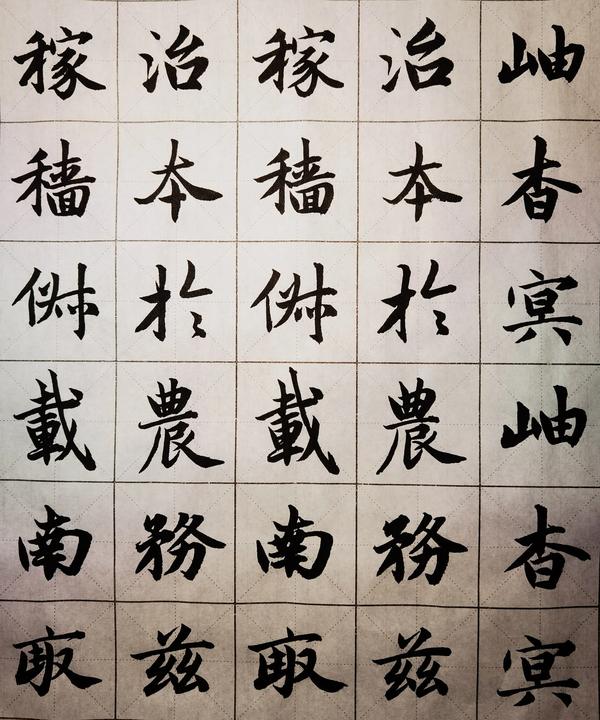 岫杳冥岫杳冥
治本於農務茲
稼穡俶載南畝
治本於農務茲
稼穡俶載南畝